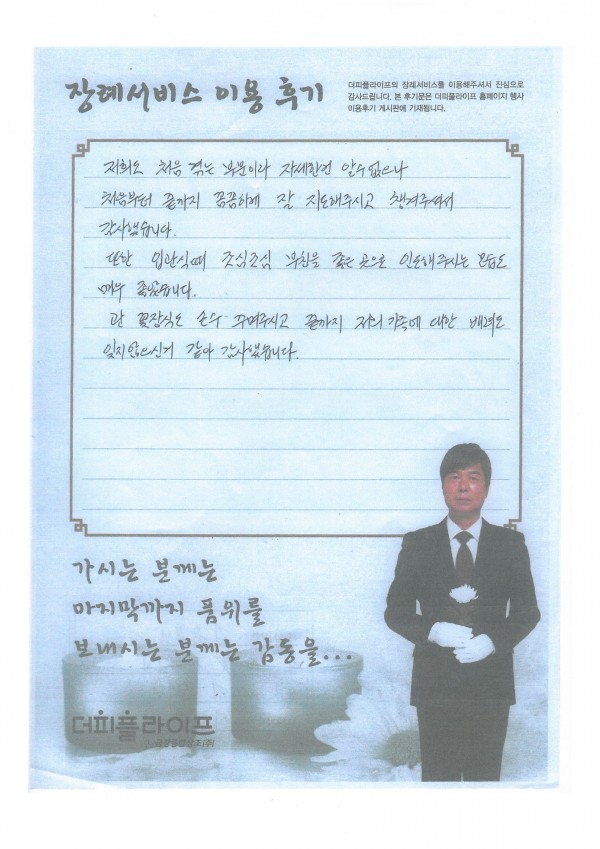 장례서비스 이용 후기
더피플라이프의 장례서비스를 이용해주셔서 진심으로
감사드립니다. 본 후기문은 더피플라이프 홈페이지 행사
이용후기 게시판에 기재됩니다.
저희도 처음 겪는 부분이라 자세한건 알수없으나
처음부터 끝까지 꼼꼼하게 잘 지도해주시고 챙겨주셔서
감사했습니다.
또한 입관식때 조심조심 부친을 좋은 곳으로 인도해주시는 모습도
매우 좋았습니다.
관 꽃장식도 손수 꾸며주시고 끝까지 저희 가족에 대한 배려도
잊지않으신거 같아 감사했습니다.
가시는 분께는
마지막까지 품위를
보내시는 분께는 감동을...
더피플라이프